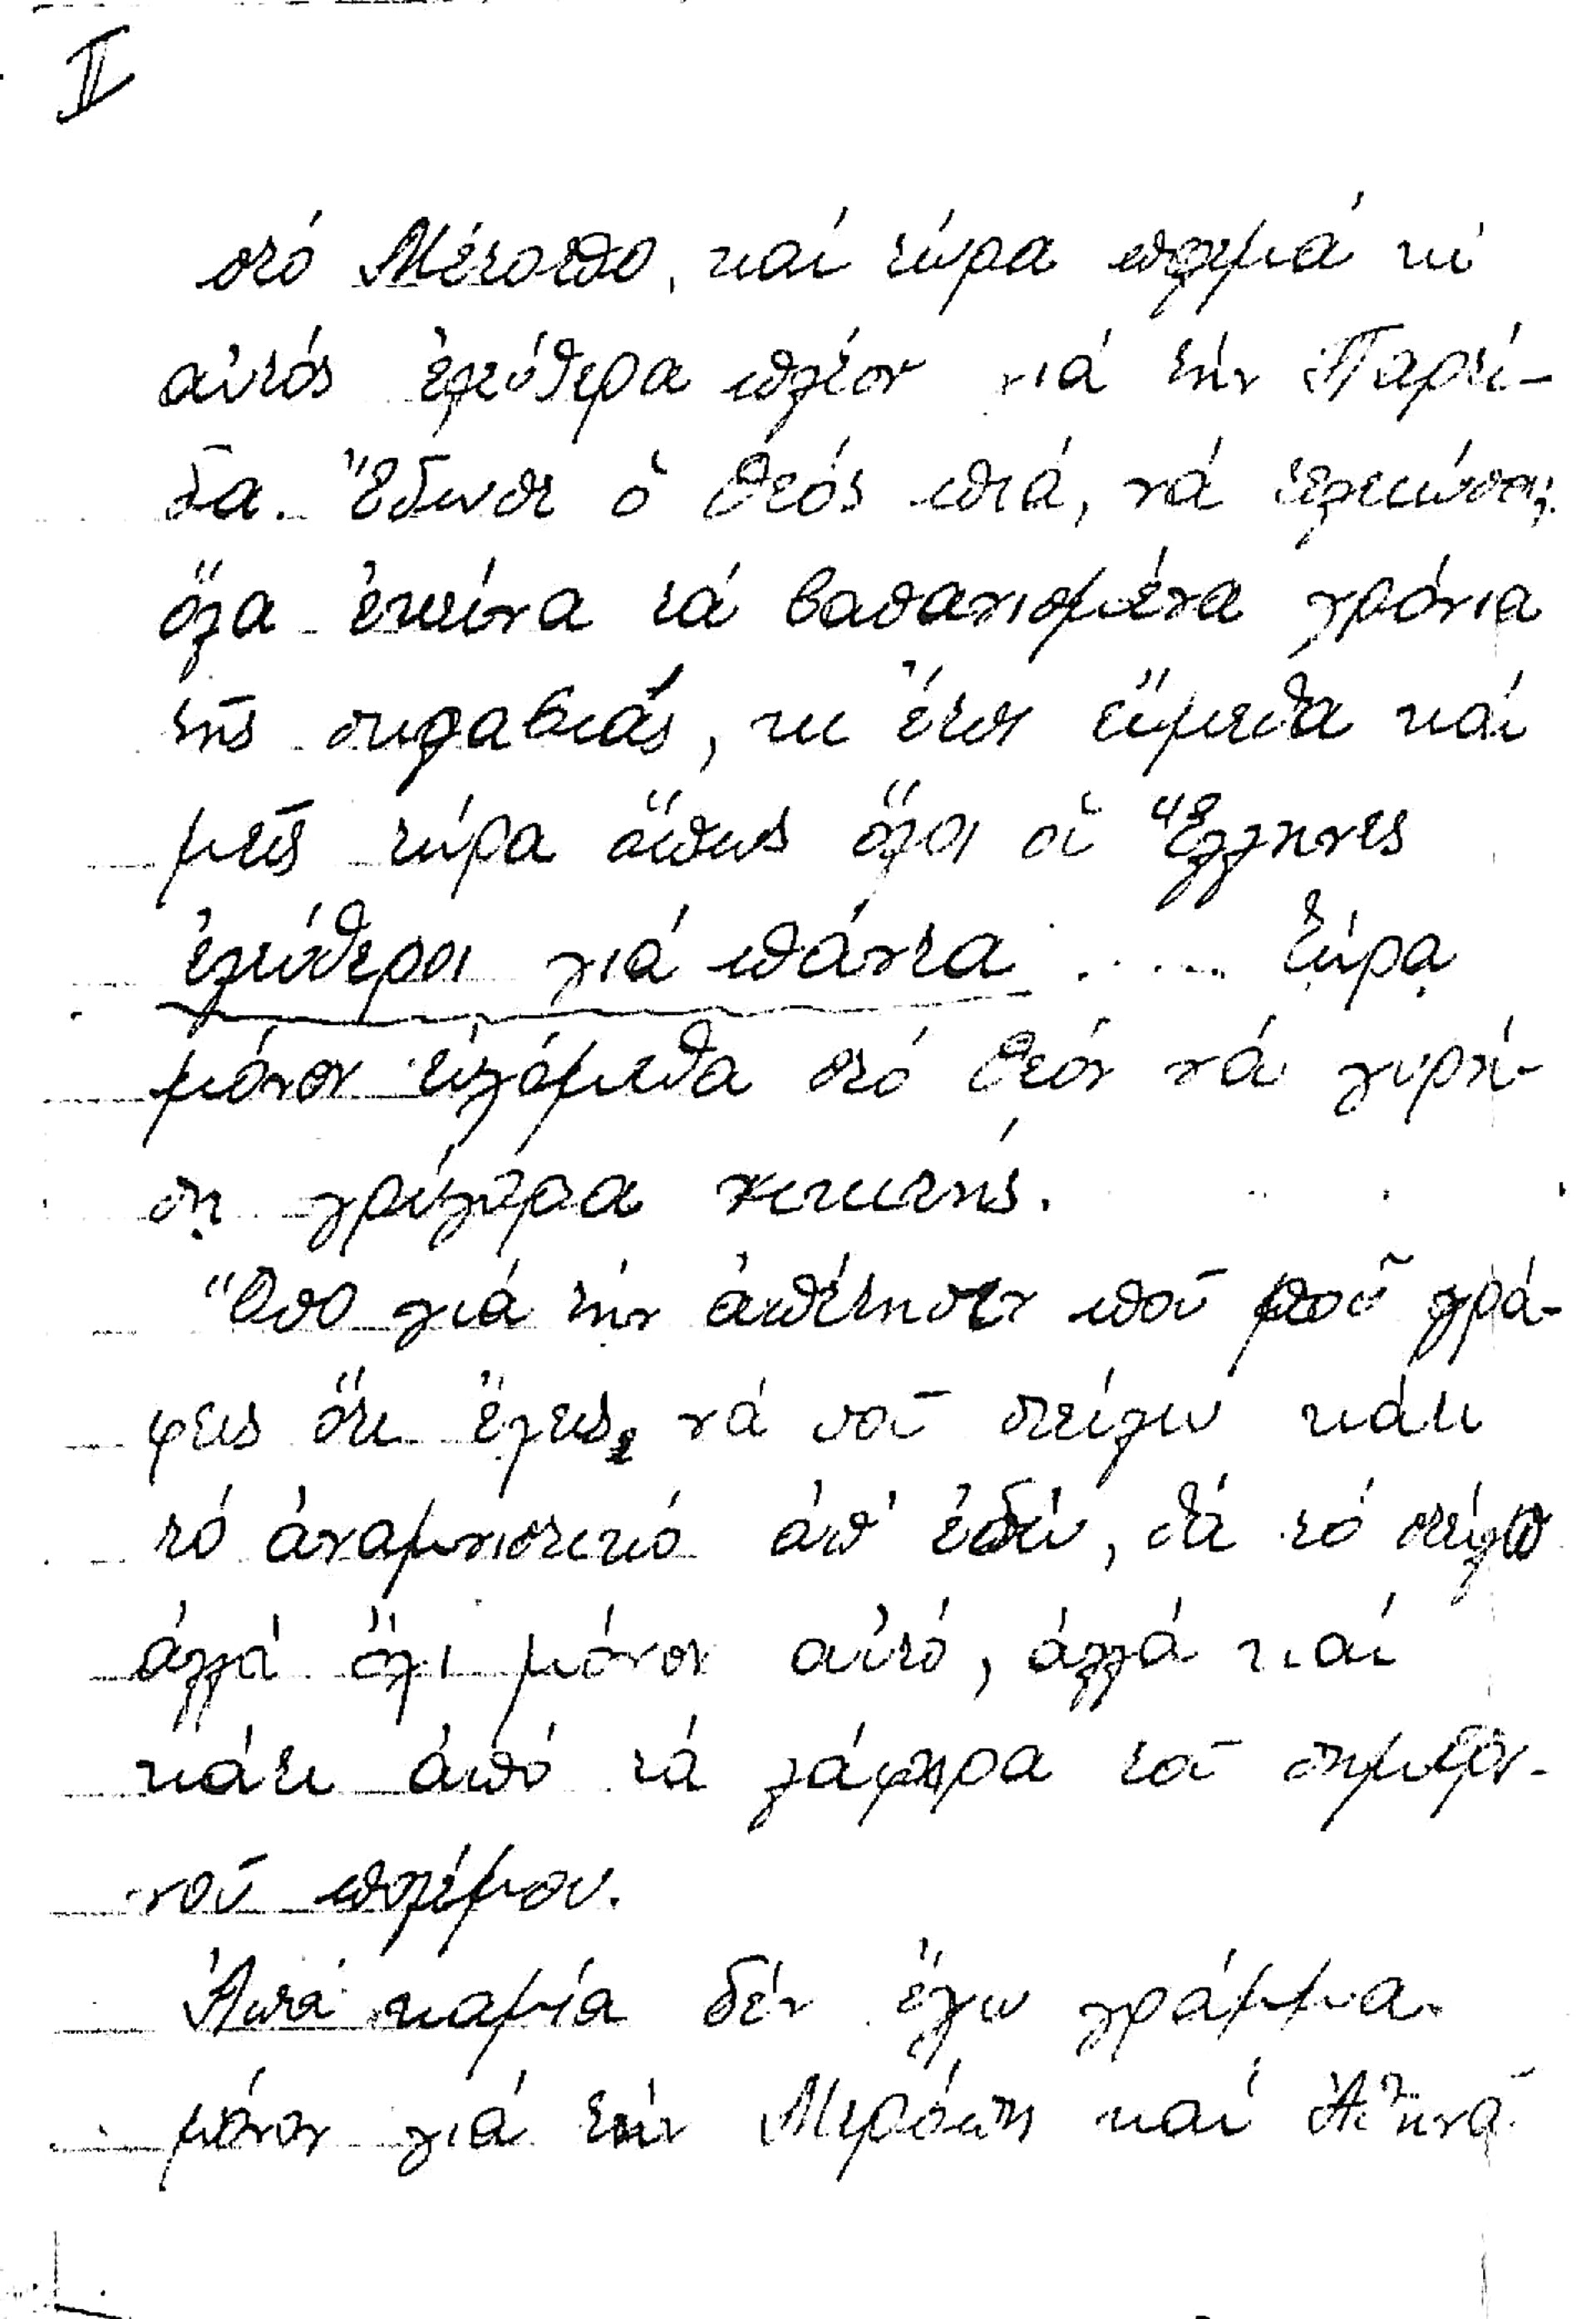 II
στό Μέτοπο, καί τώρα πολεμά κι'
αὐτός ἐλεύθερα πλέον γιά τήν Πατρί-
δα. Ἔδωσε ὁ Θεός πιά, νά τελειώσῃ
ὅλα ἐκείνα τά βασανισμένα χρόνια
τῆς σκλαβιάς, κι' ἔτσι εἴμεθα καί
μεῖς τώρα ὅπως ὅλοι οἱ Ἕλληνες
ἐλεύθεροι γιά πάντα ..... Τώρα
μόνον εὐχόμεθα στό Θεόν νά γυρί-
σῃ γρήγορα νικιτής.
Ὅσο γιά τήν ἀπέτησιν ποῦ μοῦ γρά-
φεις ὅτι ἔχεις, νά σοῦ στείλω κάτι
τό ἀναμνιστικό ἀπ' ἐδῶ, θά τό στείλω
ἀλλά ὄχι μόνον αὐτό, ἀλλά καί
κάτι ἀπό τά λάφυρα τοῦ σημερι-
νοῦ πολέμου.
Ἀπό καμία δέν ἔχω γράμμα.
μόνον γιά τήν Μερόπη καί Ἀθηνᾶ